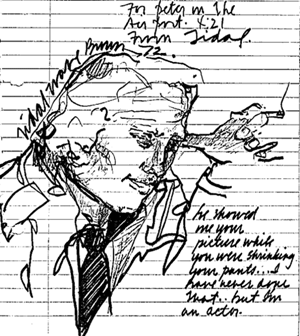 For peter in The
Air port. 4.21
From Tidal
72.
he showed
me your
picture while
you were shrinking
your pants...I
have never done
that.. but I'm
an actor.